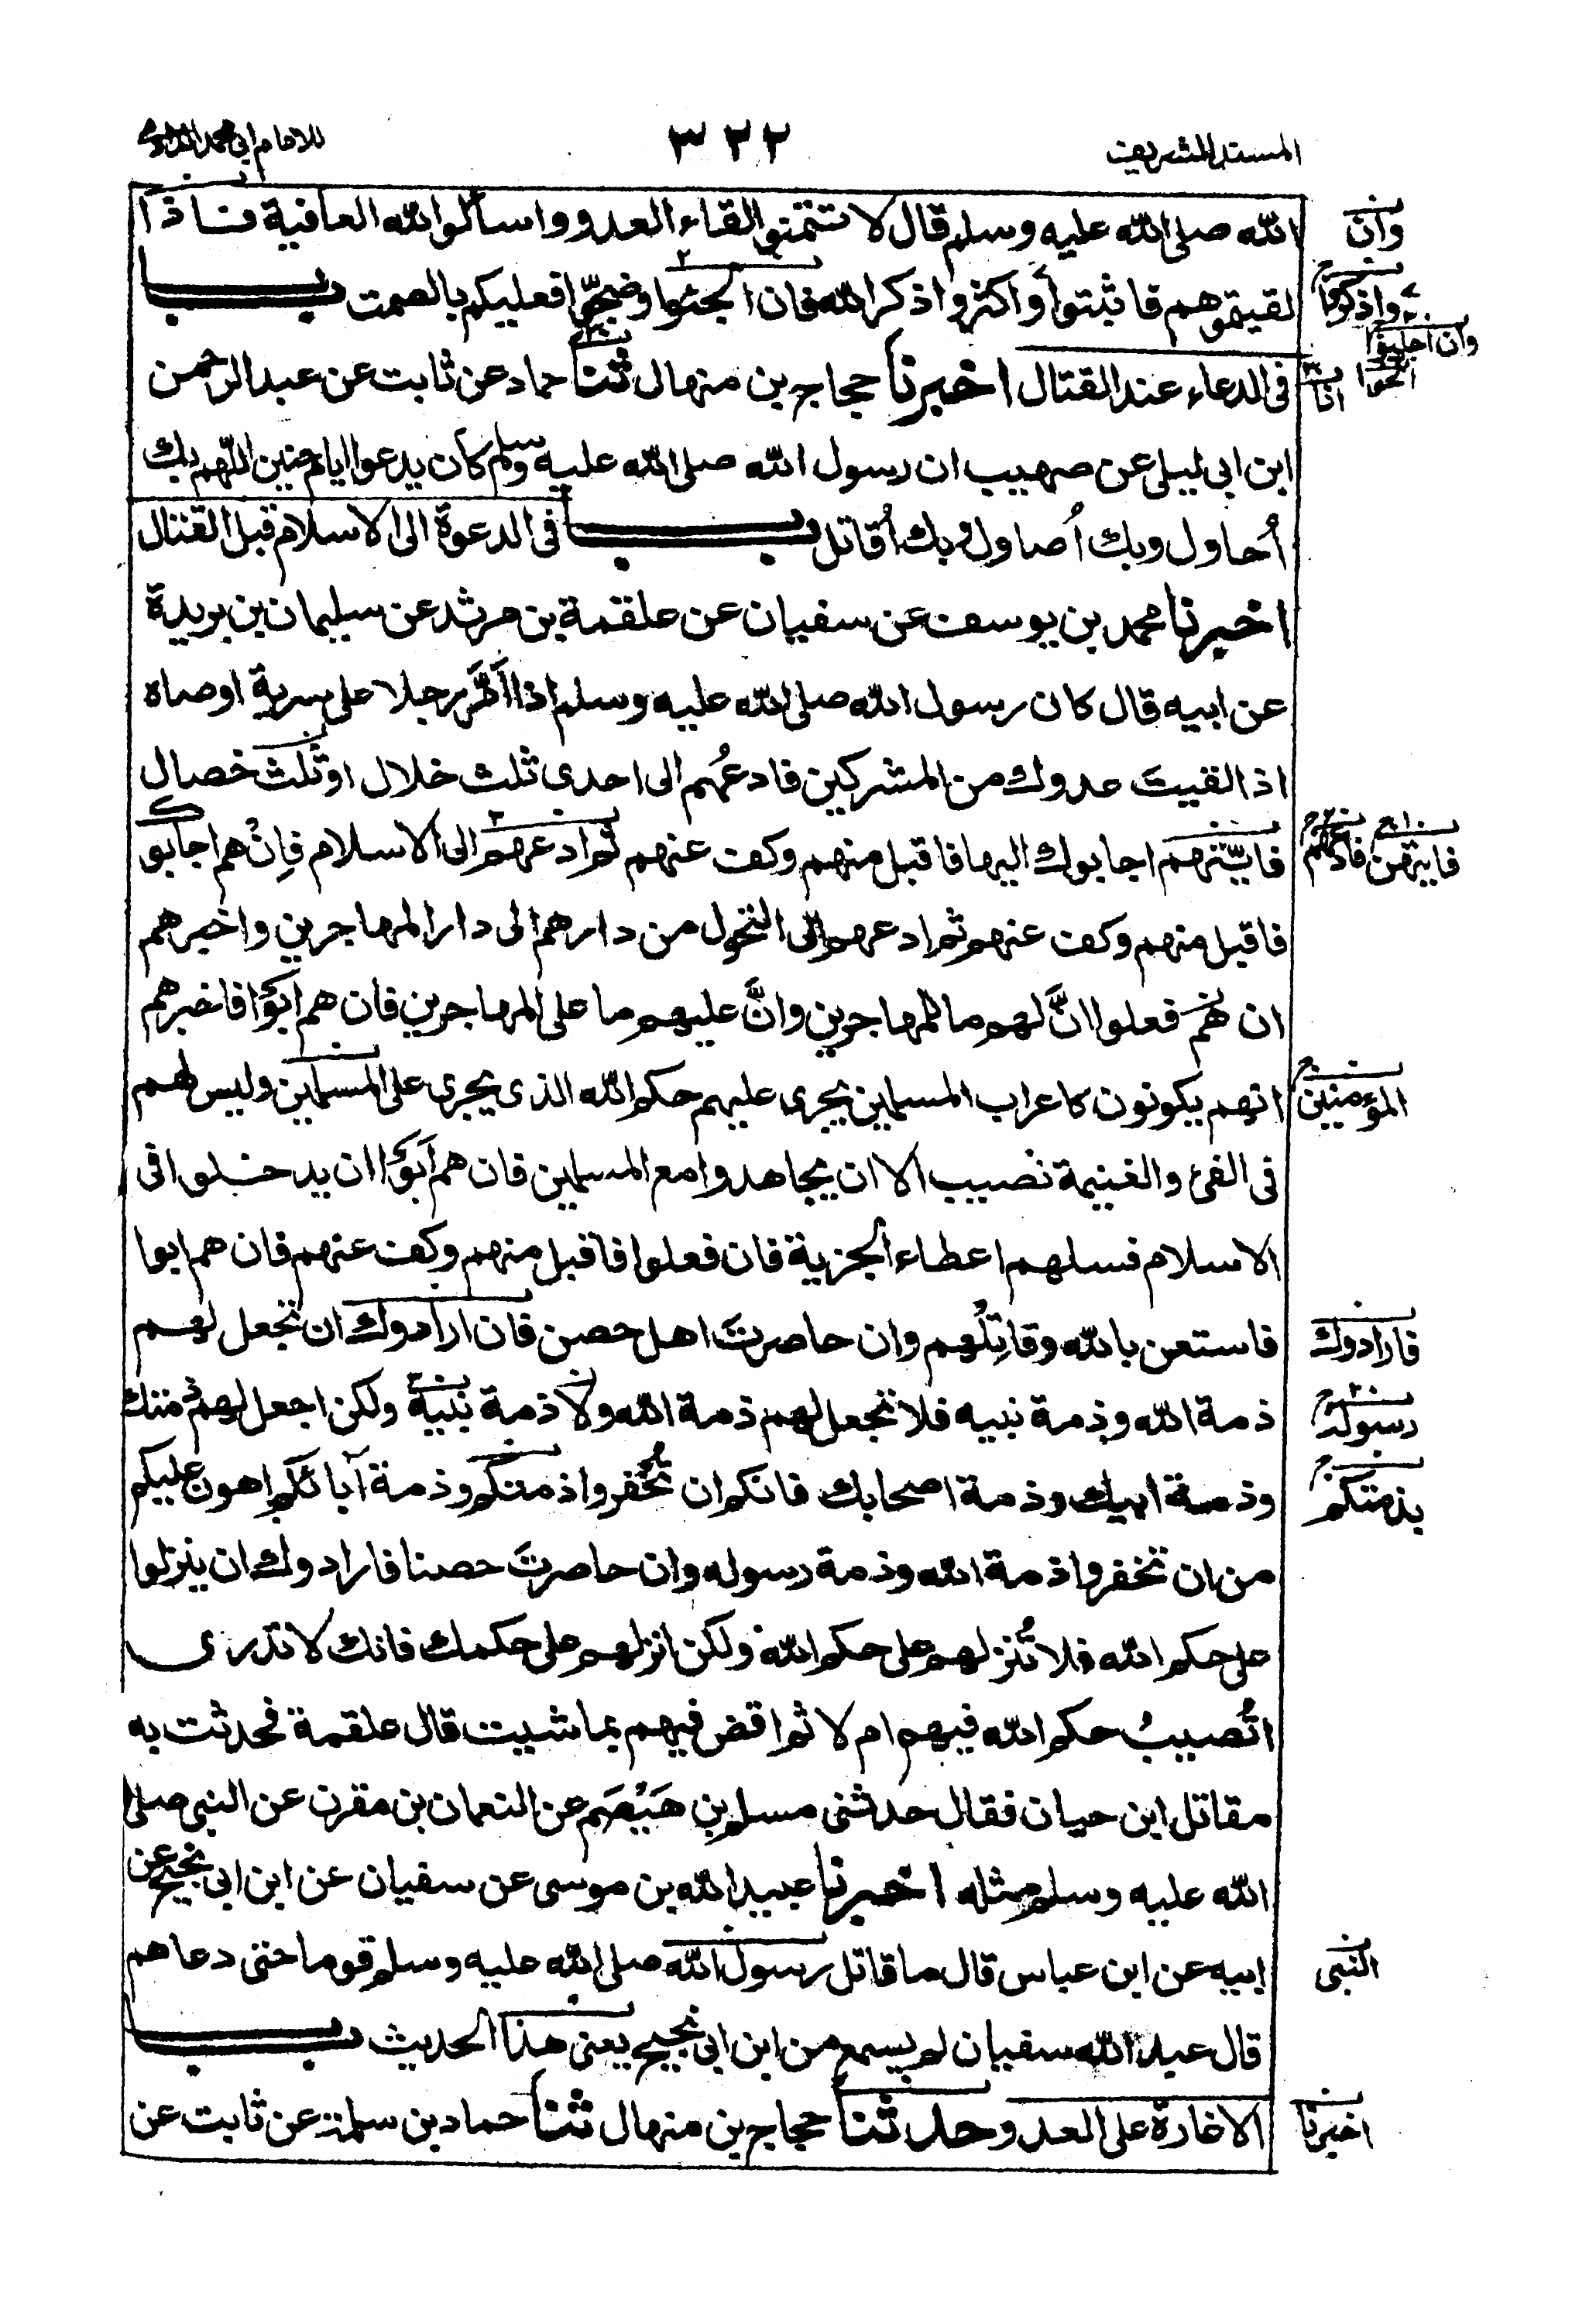 المسند الشريف
٣٢٢
للامام ابي محمد الدارمي
الله صلى الله عليه وسلم قال لا تتمنوا لقاء العدو واسألوا الله العافية فاذا
وان
لقيتموهم فاثبتوا واكثروا ذكر الله فان اجلبوا وضجوا فعليكم بالصمت باب
واذكروا
وان اجلبوا
في الدعاء عند القتال اخبرنا حجاج بن منهال ثنا حماد عن ثابت عن عبد الرحمن
انا
ابن ابي ليلى عن صهيب ان رسول الله صلى الله عليه وسلم كان يدعوا ايام حنين اللهم بك
أُحاول وبك أُصاول وبك أُقاتل باب في الدعوة الى الاسلام قبل القتال
اخبرنا محمد بن يوسف عن سفيان عن علقمة بن مرثد عن سليمان بن بريدة
عن ابيه قال كان رسول الله صلى الله عليه وسلم اذا اَمَّر رجلا على سرية اوصاه
اذا لقيتَ عدوك من المشركين فادعُهم الى احدى ثلث خلال او ثلث خصال
فايّتهم اجابوك اليها فاقبل منهم وكف عنهم ثم ادعهم الى الاسلام فاِنْ هم اجابوك
فايتهن
فاقبل منهم وكف عنهم ثم ادعهم الى التحول من دارهم الى دار المهاجرين واخبرهم
ان هم فعلوا انَّ لهم ما للمهاجرين وانَّ عليهم ما على المهاجرين فان هم ابَوْا فاخبرهم
انهم يكونون كاعراب المسلمين يجرى عليهم حكم الله الذى يجرى على المسلمين وليس لهم
المؤمنين
فى الفئ والغنيمة نصيب الا ان يجاهدوا مع المسلمين فان هم اَبَوْا ان يدخلوا فى
الاسلام فسلهم اعطاء الجزية فان فعلوا فاقبل منهم وكف عنهم فان هم ابوا
فاستعن بالله وقاتِلْهم وان حاصرتَ اهل حصن فان ارادوك ان تجعل لهم
فارادوك
ذمة الله وذمة نبيه فلا تجعل لهم ذمة الله ولا ذمة نبيه ولكن اجعل لهم ذمتك
رسوله
وذمة ابيك وذمة اصحابك فانكم ان تُخفروا ذمتكم وذمة آبائكم اهون عليكم
بذمتكم
من ان تخفروا ذمة الله وذمة رسوله وان حاصرتَ حصنا فارادوك ان ينزلوا
على حكم الله فلا تُنزلهم على حكم الله ولكن انزلهم على حكمك فانك لا تدرى
اتُصيبُ حكم الله فيهم ام لا ثم اقض فيهم بما شيت قال علقمة فحدثت به
مقاتل ابن حيان فقال حدثنى مسلم بن هَيْصَم عن النعمان بن مقرن عن النبى صلى
الله عليه وسلم مثله اخبرنا عبيد الله بن موسى عن سفيان عن ابن ابى نجيح عن
ابيه عن ابن عباس قال ما قاتل رسول الله صلى الله عليه وسلم قوما حتى دعاهم
النبى
قال عبد الله سفيان لم يسمع من ابن ابى نجيح يعنى هذا الحديث باب
الاغارة على العدو حدثنا حجاج بن منهال ثنا حماد بن سلمة عن ثابت عن
اخبرنا